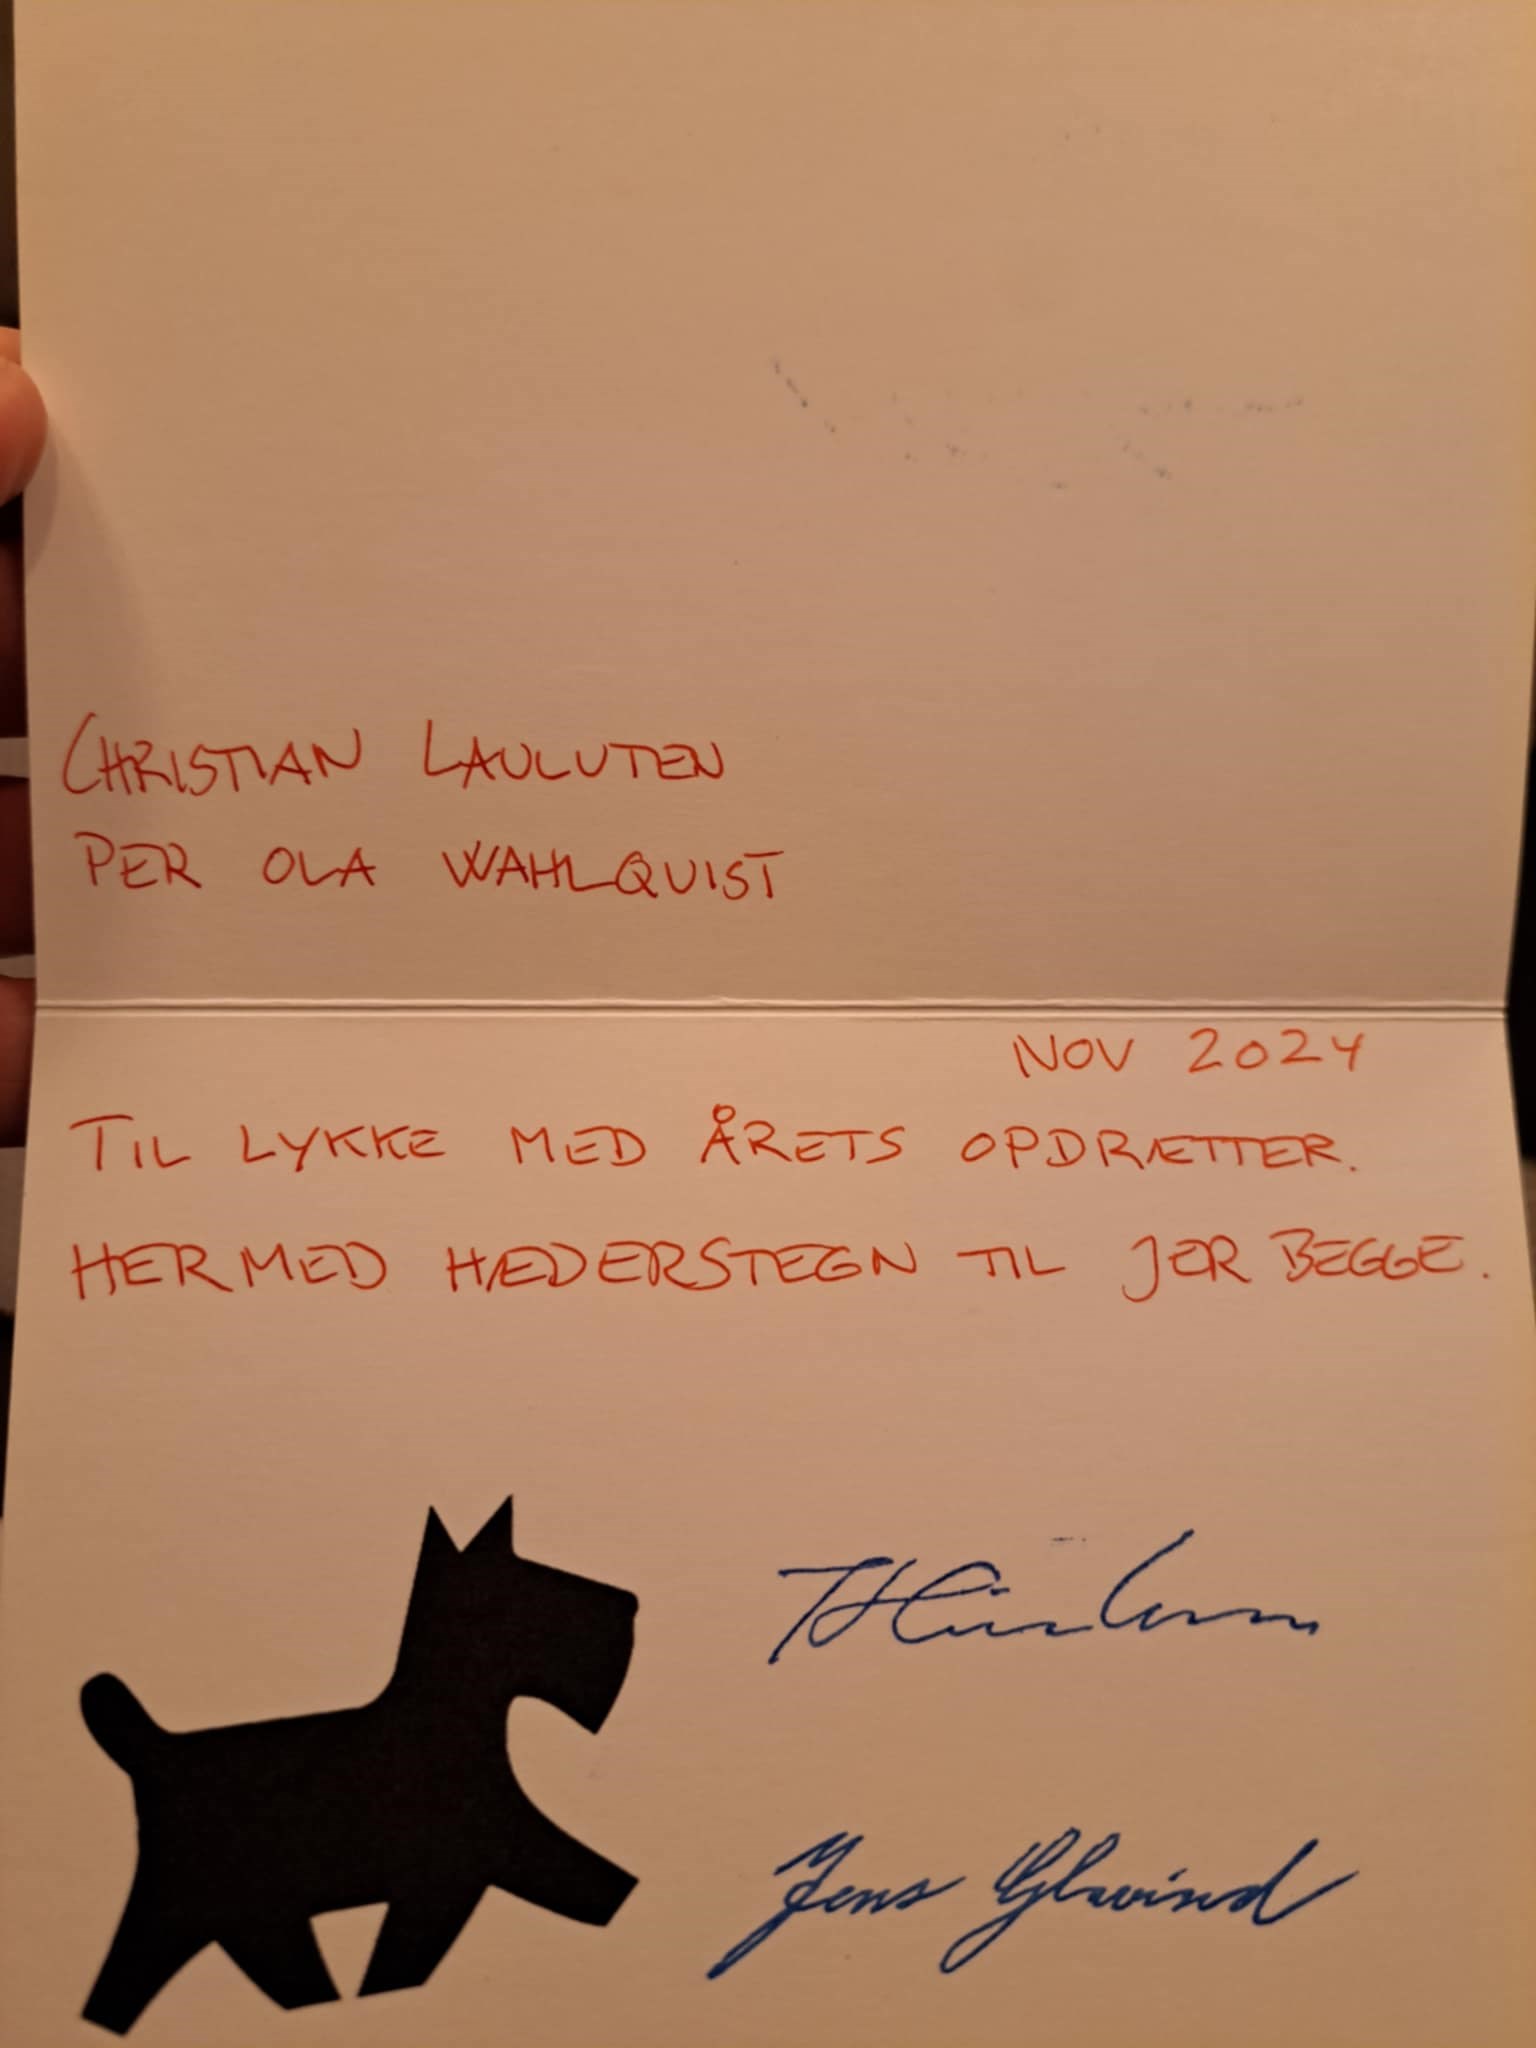 CHRISTIAN LAULUTEN
PER OLA WAHLQUIST
NOV 2024
TIL LYKKE MED ÅRETS OPDRÆTTER.
HERMED HÆDERSTEGN TIL JER BEGGE.
Jens Glavind